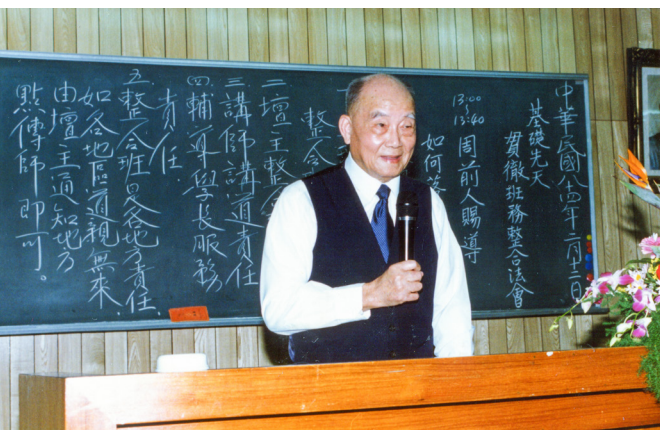 中華民國八十四年二月十二日
基礎先天
貫徹班務整合法會
13:00
13:40
周前人賜導
如何落
整合
二壇主整合
三講師講道責任
四輔導學長服務
責任.
五整合班是各地方責任.
如各地區道親無來,
由壇主通知地方
點傳師即可。